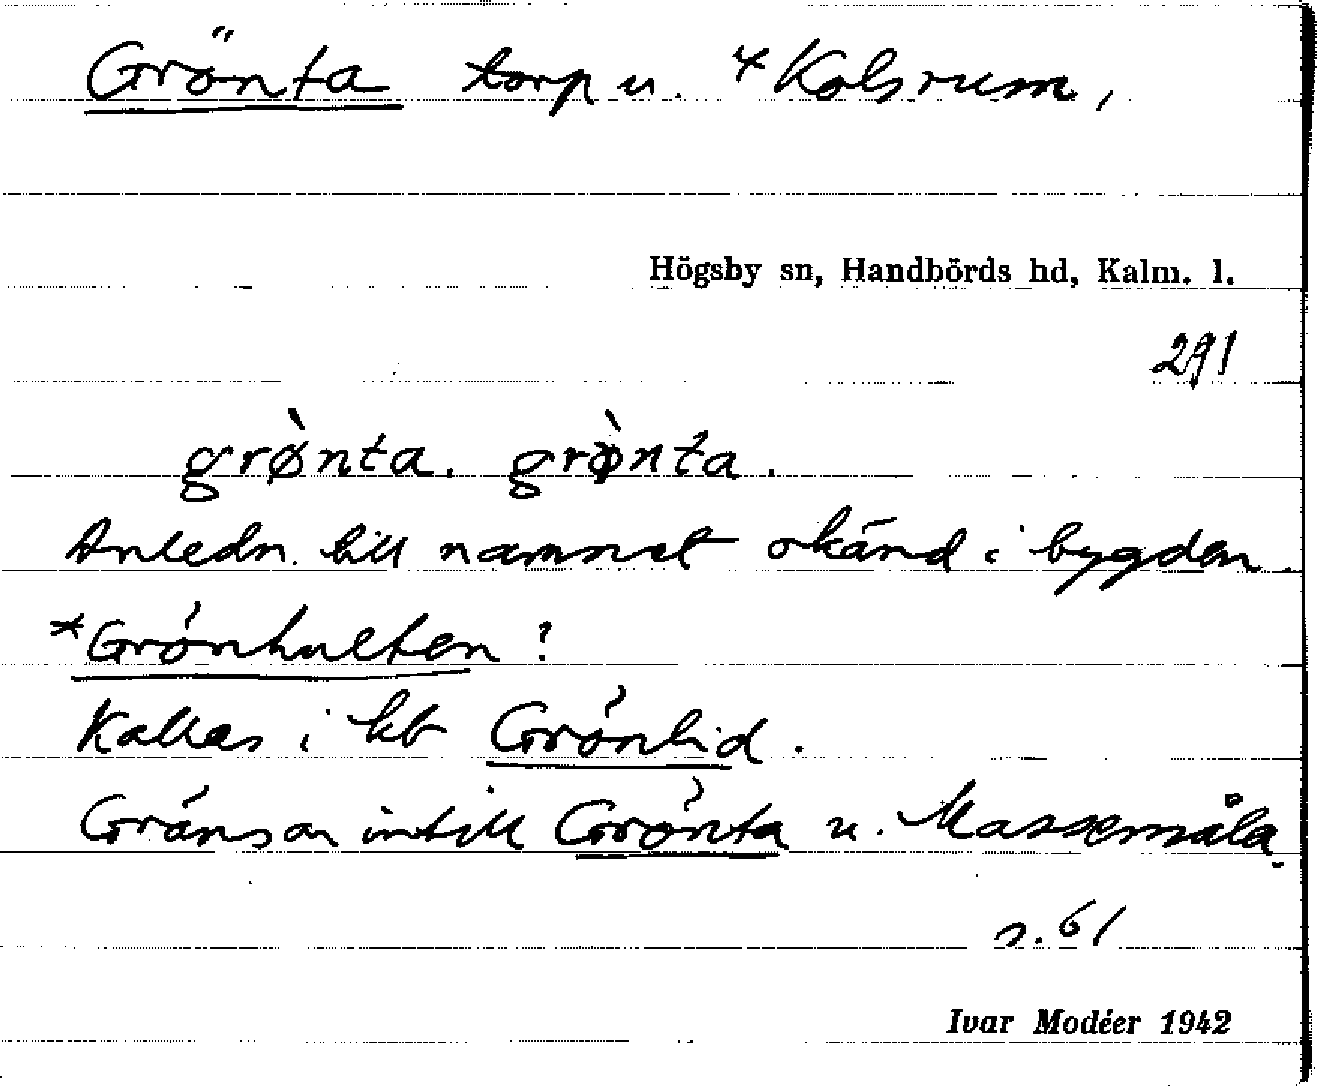 Grönta torp u. 4 Kolsrum,
Högsby sn, Handbörds hd, Kalm. l.
291
grø̀nta. grø̀nta.
Anledn. till namnet okänd i bygden.
*Grönhulten?
Kallas i kb Grönlid.
Gränsar intill Grönta u. Massemåla.
s. 61
Ivar Modéer 1942